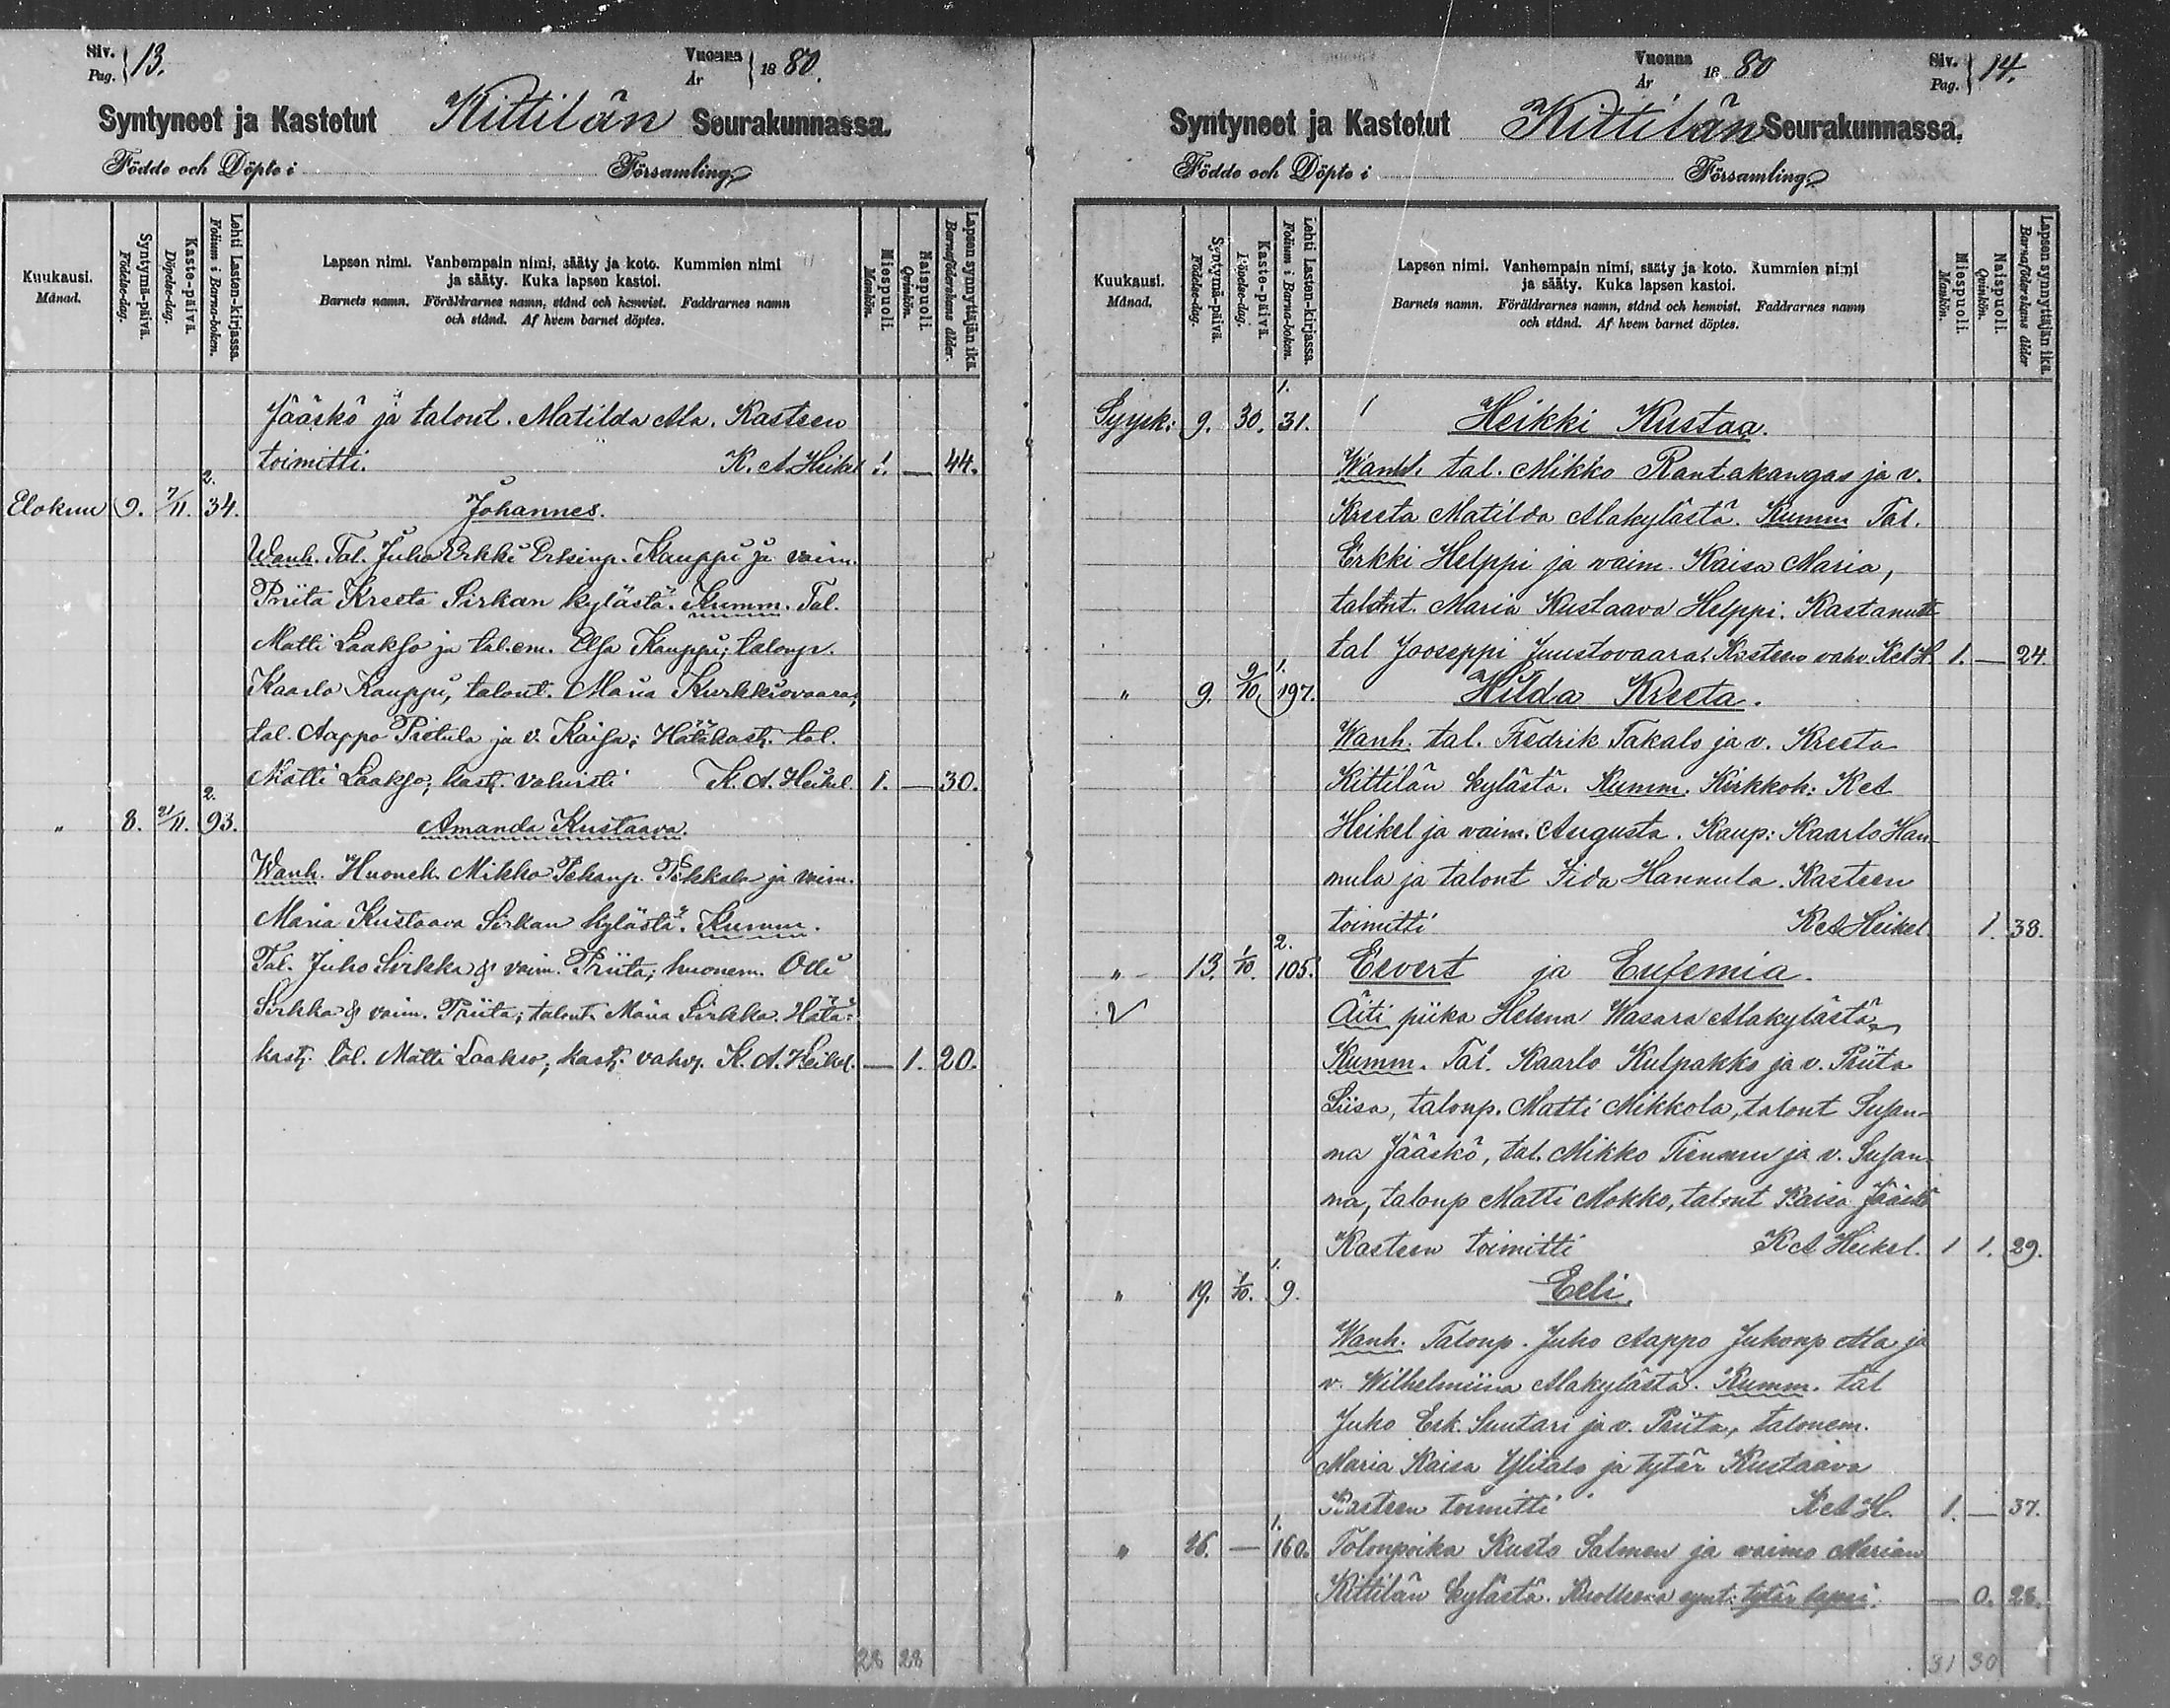 Siv. Pag. 13.
Vuonna År 1880.
Syntyneet ja Kastetut Kittilän Seurakunnassa.
Födde och Döpte i Församling
Kuukausi. Månad.
Syntymä-päivä. Födelse-dag.
Kaste-päivä. Döpelse-dag.
Lehti Lasten-kirjassa. Folium i Barna-boken.
Lapsen nimi. Vanhempain nimi, sääty ja koto. Kummien nimi
ja sääty. Kuka lapsen kastoi.
Barnets namn. Föräldrarnes namn, stånd och hemvist. Faddrarnes namn
och stånd. Af hvem barnet döptes.
Miespuoli. Mankön.
Naispuoli. Qvinkön.
Lapsen synnyttäjän ikä. Barnaföderskans ålder.
Jääskö ja talont. Matilda Ala. Kasteen
toimitti. K. A. Heikel 1. — 44.
Elokuu 9. 7/11. 2. 34. Johannes.
Wanh. Tal. Juho Erkki Erkinp. Kauppi ja vaim.
Priita Kreeta Sirkan kylästä. Kumm. Tal.
Matti Laakso ja tal.em. Elsa Kauppi; talonp.
Kaarlo Kauppi, talont. Maria Kurkkiovaara,
tal. Aappo Pietula ja v. Kaisa; Hätäkast. tal.
Matti Laakso; kast. vahvisti K. A. Heikel. 1. — 30.
" 8. 21/11. 2. 93. Amanda Kustaava.
Wanh. Huoneh. Mikko Pekanp. ja vaim.
Maria Kustaava Sirkan kylästä. Kumm.
Tal. Juho Sirkka & vaim. Priita; huonem. Olli
Sirkka & vaim. Priita; talont. Maria Sirkka. Hätä:
kast. tal. Matti Laakso; kast. vahv. K. A. Heikel. — 1. 20.
28 28
Vuonna År 1880
Siv. Pag. 14.
Syntyneet ja Kastetut Kittilän Seurakunnassa.
Födde och Döpte i Församling
Kuukausi. Månad.
Syntymä-päivä. Födelse-dag.
Kaste-päivä. Döpelse-dag.
Lehti Lasten-kirjassa. Folium i Barna-boken.
Lapsen nimi. Vanhempain nimi, sääty ja koto. Kummien nimi
ja sääty. Kuka lapsen kastoi.
Barnets namn. Föräldrarnes namn, stånd och hemvist. Faddrarnes namn
och stånd. Af hvem barnet döptes.
Miespuoli. Mankön.
Naispuoli. Qvinkön.
Lapsen synnyttäjän ikä. Barnaföderskans ålder
Syysk: 9. 30. 1. 31. Heikki Kustaa.
Wanh. tal. Mikko Rantakangas ja v.
Kreeta Matilda Alakylästä. Kumm Tal.
Erkki Helppi ja vaim. Kaisa Maria,
talont. Maria Kustaava Helppi. Kastanut
tal Jooseppi Juustovaara. Kasteen vahv. KAH 1. — 24.
" 9. 9/10. 1. 197. Hilda Kreeta.
Wanh. tal. Fredrik Takalo ja v. Kreeta
Kittilän kylästä. Kumm. Kirkkoh: K A
Heikel ja vaim. Augusta. Kaup: Kaarlo Han-
nula ja talont Iida Hannula. Kasteen
toimitti K A Heikel 1. 38.
" 13. 1/10. 2. 105. Eevert ja Eufemia.
Äiti piika Helena Wasara Alakylästä
Kumm. Tal. Kaarlo Kulpakko ja v. Priita
Liisa, talonp. Matti Nikkola, talont Susan-
na Jääskö, tal. Mikko Tiensuu ja v. Susan-
na, talonp Matti Mokko, talont Kaisa Jääskö
Kasteen toimitti K A Heikel. 1 1. 29.
" 19. 1/10. 1. 9. Eeli.
Wanh. Talonp. Juho Aappo Juhonp Ala ja
v. Wilhelmiina Alakylästä. Kumm. tal
Juho Erk. Suutari ja v. Priita, talonem.
Maria Kaisa Ylitalo ja tytär Kustaava
Kasteen toimitti K A H. 1. — 37.
" 26. — 1. 160. Talonpoika Kusto Salmen ja vaimo Marian
Kittilän kylästä. Kuolleena synt. tytär lapsi. — 0. 28.
31 30